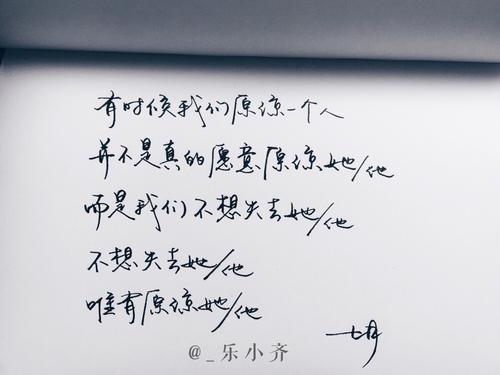 有时候我们原谅一个人
并不是真的愿意原谅她/他
而是我们不想失去她/他
不想失去她/他
唯有原谅她/他
七月
@_乐小齐